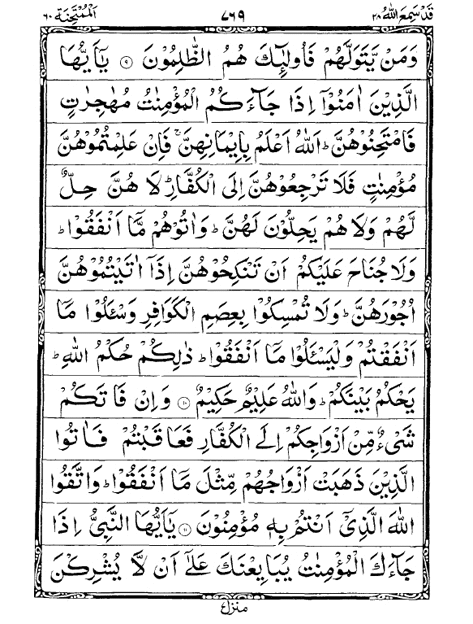 قدسمع الله ٢٨ ٧٦٩ الممتحنة ٦٠
وَمَنْ يَّتَوَلَّهُمْ فَاُولٰٓئِكَ هُمُ الظّٰلِمُوْنَ ۝٩ يٰۤاَيُّهَا
الَّذِيْنَ اٰمَنُوْۤا اِذَا جَآءَكُمُ الْمُؤْمِنٰتُ مُهٰجِرٰتٍ
فَامْتَحِنُوْهُنَّ ؕ اَللّٰهُ اَعْلَمُ بِاِيْمَانِهِنَّ ۚ فَاِنْ عَلِمْتُمُوْهُنَّ
مُؤْمِنٰتٍ فَلَا تَرْجِعُوْهُنَّ اِلَى الْكُفَّارِ ؕ لَا هُنَّ حِلٌّ
لَّهُمْ وَلَا هُمْ يَحِلُّوْنَ لَهُنَّ ؕ وَاٰتُوْهُمْ مَّاۤ اَنْفَقُوْا ؕ
وَلَا جُنَاحَ عَلَيْكُمْ اَنْ تَنْكِحُوْهُنَّ اِذَاۤ اٰتَيْتُمُوْهُنَّ
اُجُوْرَهُنَّ ؕ وَلَا تُمْسِكُوْا بِعِصَمِ الْكَوَافِرِ وَسْـَٔلُوْا مَاۤ
اَنْفَقْتُمْ وَلْيَسْـَٔلُوْا مَاۤ اَنْفَقُوْا ؕ ذٰلِكُمْ حُكْمُ اللّٰهِ ؕ
يَحْكُمُ بَيْنَكُمْ ؕ وَاللّٰهُ عَلِيْمٌ حَكِيْمٌ ۝١٠ وَاِنْ فَاتَكُمْ
شَيْءٌ مِّنْ اَزْوَاجِكُمْ اِلَى الْكُفَّارِ فَعَاقَبْتُمْ فَاٰتُوا
الَّذِيْنَ ذَهَبَتْ اَزْوَاجُهُمْ مِّثْلَ مَاۤ اَنْفَقُوْا ؕ وَاتَّقُوا
اللّٰهَ الَّذِيْۤ اَنْتُمْ بِهٖ مُؤْمِنُوْنَ ۝١١ يٰۤاَيُّهَا النَّبِيُّ اِذَا
جَآءَكَ الْمُؤْمِنٰتُ يُبَايِعْنَكَ عَلٰۤى اَنْ لَّا يُشْرِكْنَ
منزل